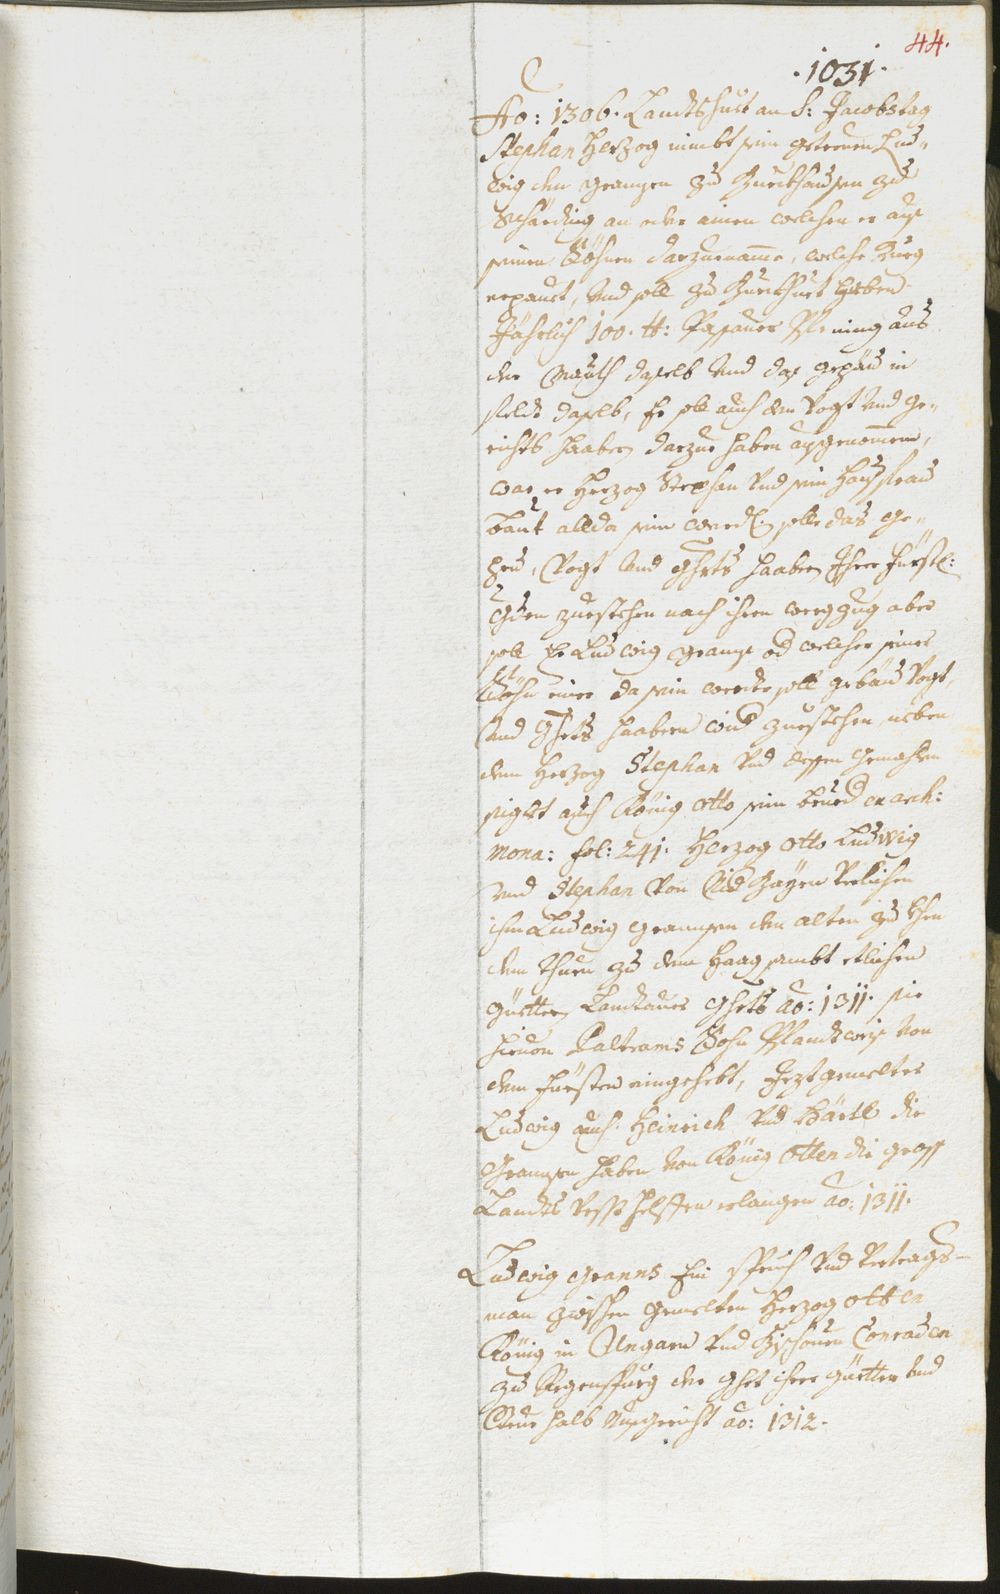 44.
.1031.
Ao: 1306. Landtshuet an S: Jacobstag
Stephan Herzog nimbt sein getreuen Lud-
wig den Granzen zu Burckhausen zu
Schärding an oder ainen welchen er aus
seinen Söhnen darzue name, welche Burg
erpaut, und soll zu Burckhuet haben
Jährlich 100. tt: Passauer Pfening aus
der Mauth daselb und das gepäu in
felde daselb, Er soll auch den Vogt und ge-
richts haabern darzue haben ausgenommen,
wan er Herzog Stephan und sein Hausfrau
baut allda sein werd, solle das ge-
peu, Vogt und Ghrts haabern Ihrer Fürstl:
Gden zuestehen nach ihren weegzug aber
soll Er Ludwig Granz od welcher seiner
Söhn einer da sein werde soll gebäu Vogt,
und Ghrts haabern wid zuestehen neben
dem Herzog Stephan und dessen Gemahlen
siglt auch König Otto sein brued ex arch:
mona: fol: 241. Herzog Otto Ludwig
und Stephan von Nid Bayrn verlichen
ihm Ludwig Granzen den alten zu Lhen
den Thurn zu dem Haag sambt etlichen
güetter Landauer Ghrts ao: 1311. sie
hievon Paltrams Sohn Pfandtweis von
dem Fürsten eingehebt, Jezt gemelter
Ludwig auch Heinrich und Bärtl die
Granzen haben von König Otten die gross
Landts verlangen ao: 1311.
Ludwig Granns Ein spruch und vertrags-
man zwischen gemelten Herzog Otten
König in Ungarn und Bischoven Conraden
zu Regenspurg der Ghrt ihrer güetter und
halb ao: 1312.